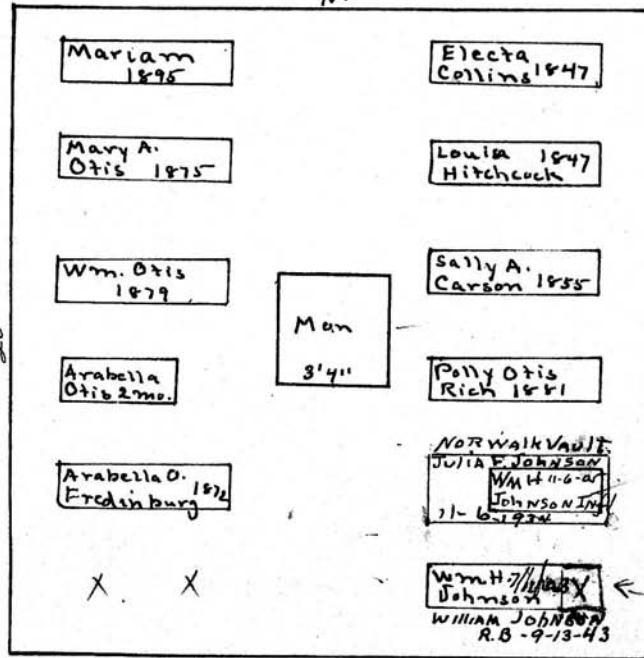 N.
Mariam
1895
Mary A.
Otis 1875
Wm. Otis
1879
Arabella
Otis 2mo.
Arabella O.
Fredinburg 1872
X X
Mon
3'4"
Electa
Collins 1847
Louisa 1847
Hitchcock
Sally A.
Carson 1855
Polly Otis
Rich 1881
NORWALK VAULT
JULIA F. JOHNSON
WM H 11-6-
JOHNSON
11-6-1934
Wm. H.
Johnson X
WILLIAM JOHNSON
R.B - 9-13-43